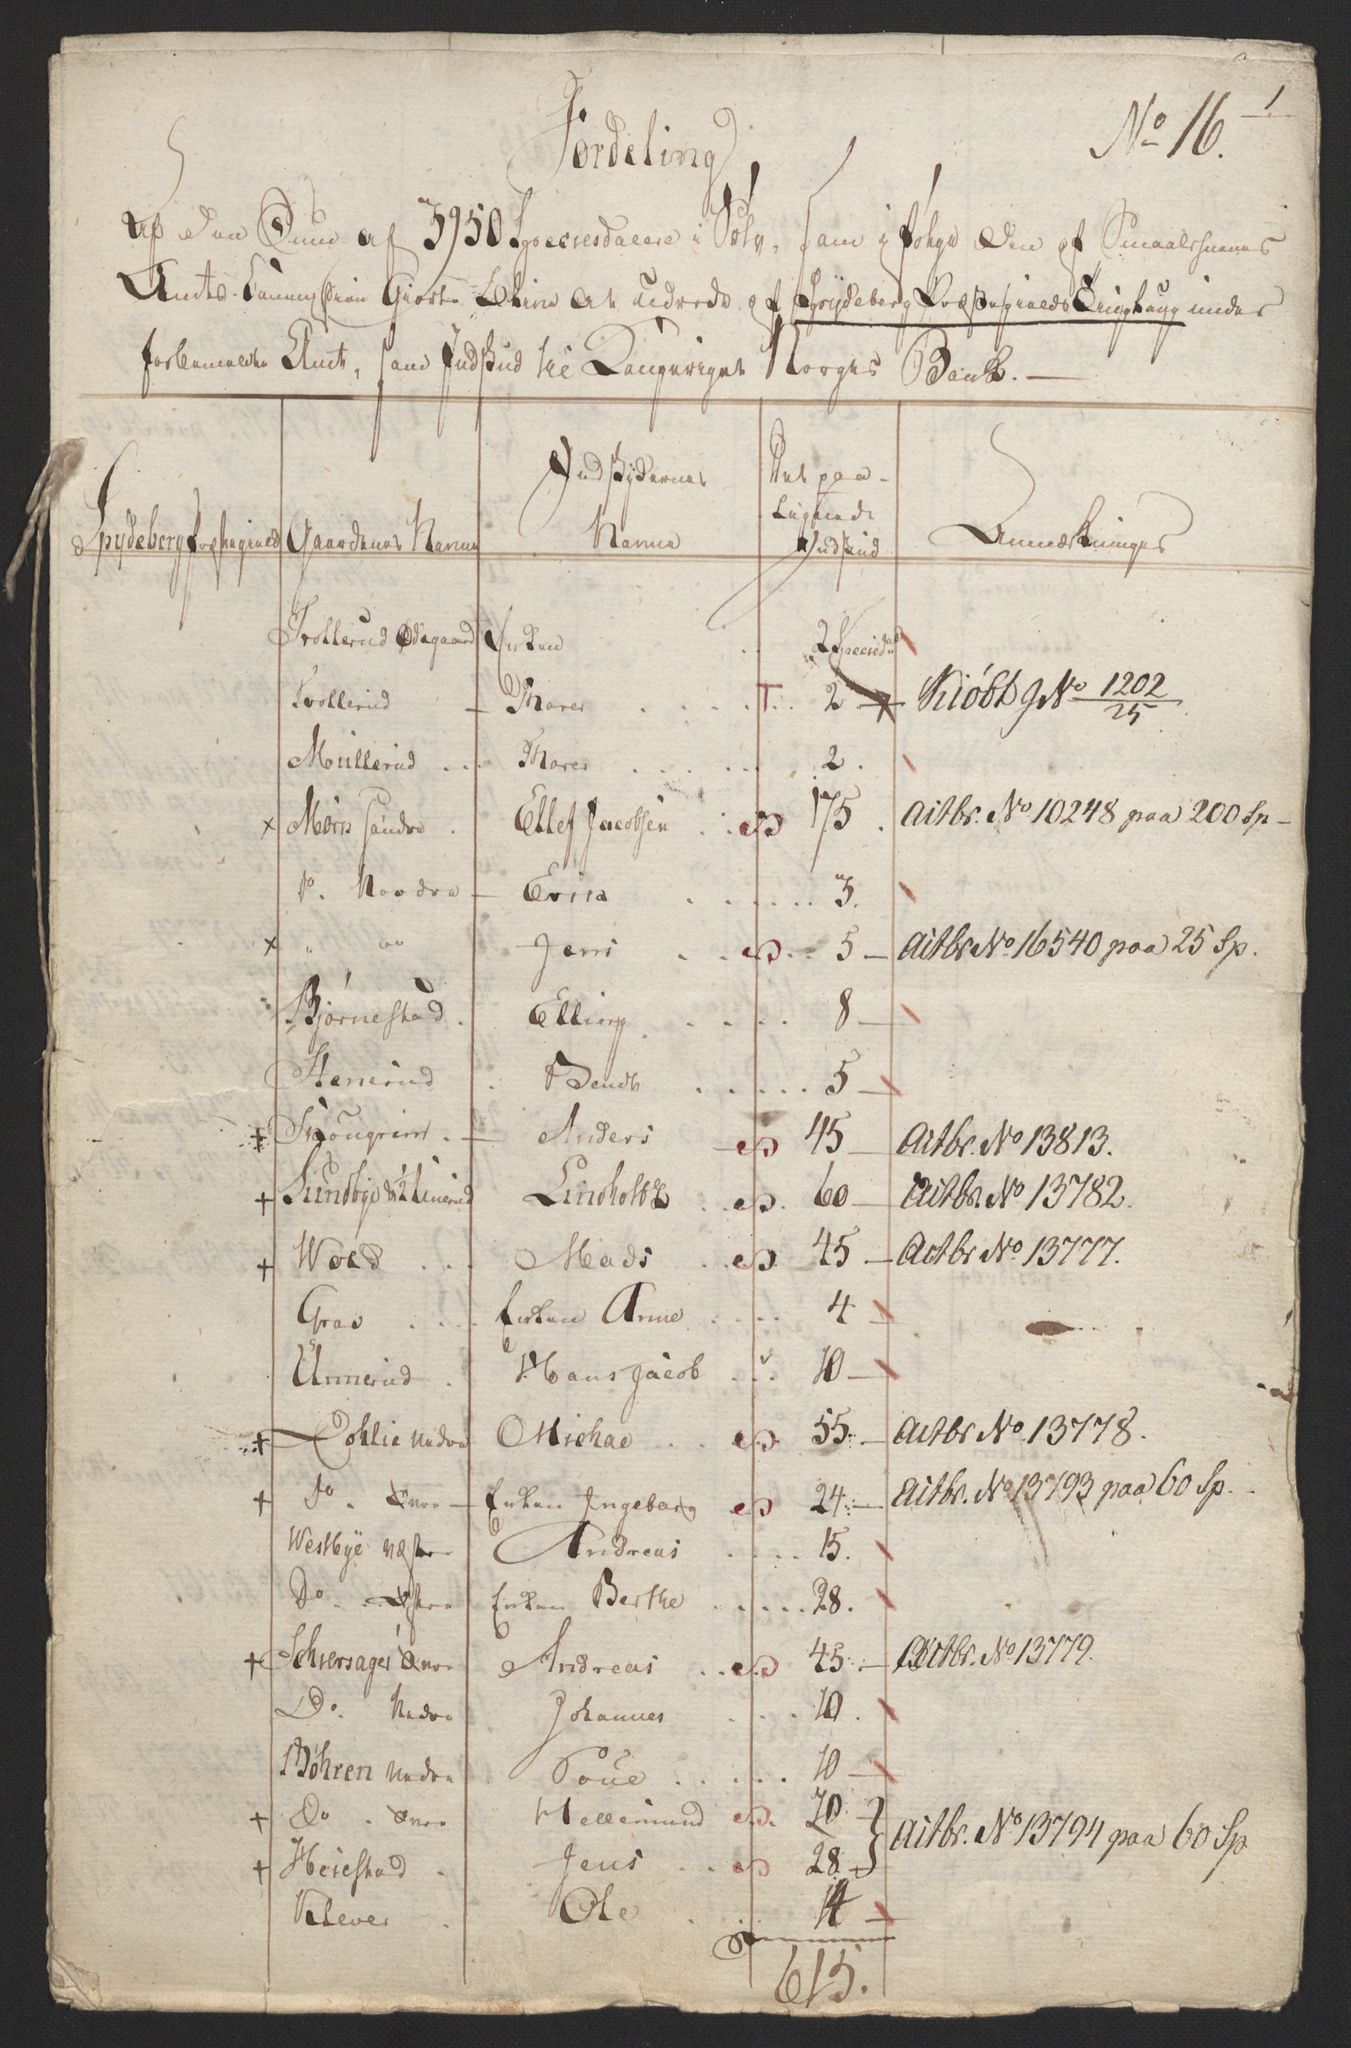 No 16. 1
Fordeling
Af den Sum af 3950 Speciesdalere i Sølv, som i følge den af Smaalehnenes
Amts-Commission Giorte Ligning at udrede af Spydeberg Præstegields Tinghaug under
forbemeldte Amt, som Indskud til Kongeriget Norges Bank. —
Spydeberg Præstegield Gaardenes Navne Indskydernes Navne Det paa-Lignede Indskud Anmærkninger
Trollerud Ødegaard Enken . 2 Speciesd
Trollerud — Thorer . . . . T . . 2 — Kiøbt gl No 1202/25
Moüllerud . . . Thorer . . . . . . 2 .
x Møris søndre . Ellef Jacobsen . . 175 . Actbr. No 10248 paa 200 Sp —
Do. Nordre — Eric . . . . . . 3.
x " " Jens . . . . . 5 — Actbr No 16540 paa 25 Sp.
Bjørnestad . Elling . . . . . 8 —
Stenerud . Bendt . . . . . . 5 —
+ Skougrim . — Anders 45 — Actbr. No 13813.
+ Sundbye & Linerud Lindholdt . . 60 — Actbr. No 13782.
+ Wold . . . Mads . . 45 — Actbr No 13777.
Grav . . . . Enken Anne . . . . 4 —
Unnerud . Hans Jacob . . . 10 —
+ Nedre Michael . . 55 . — Actbr No 13778.
+ Do . Øvre — Enken Ingeborg 24 . — Actbr. No 13793 paa 60 Sp. —
Westbye vestre Andreas . . . . 15.
Do . Østre Enken Berthe . . . . . 28.
+ Schiersager Øvre Andreas . . 45 . — Actbr. No 13779.
Do. Nedre Johannes . . . 10 .
Bøhren Nedre Poul . . . . . 10 —
+ Do . Øvre Hellemund . 20
+ Heiestad . Jens . . 28 — } Actbr. No 13794 paa 60 Sp
Klever . Ole . . . 14 —
615.